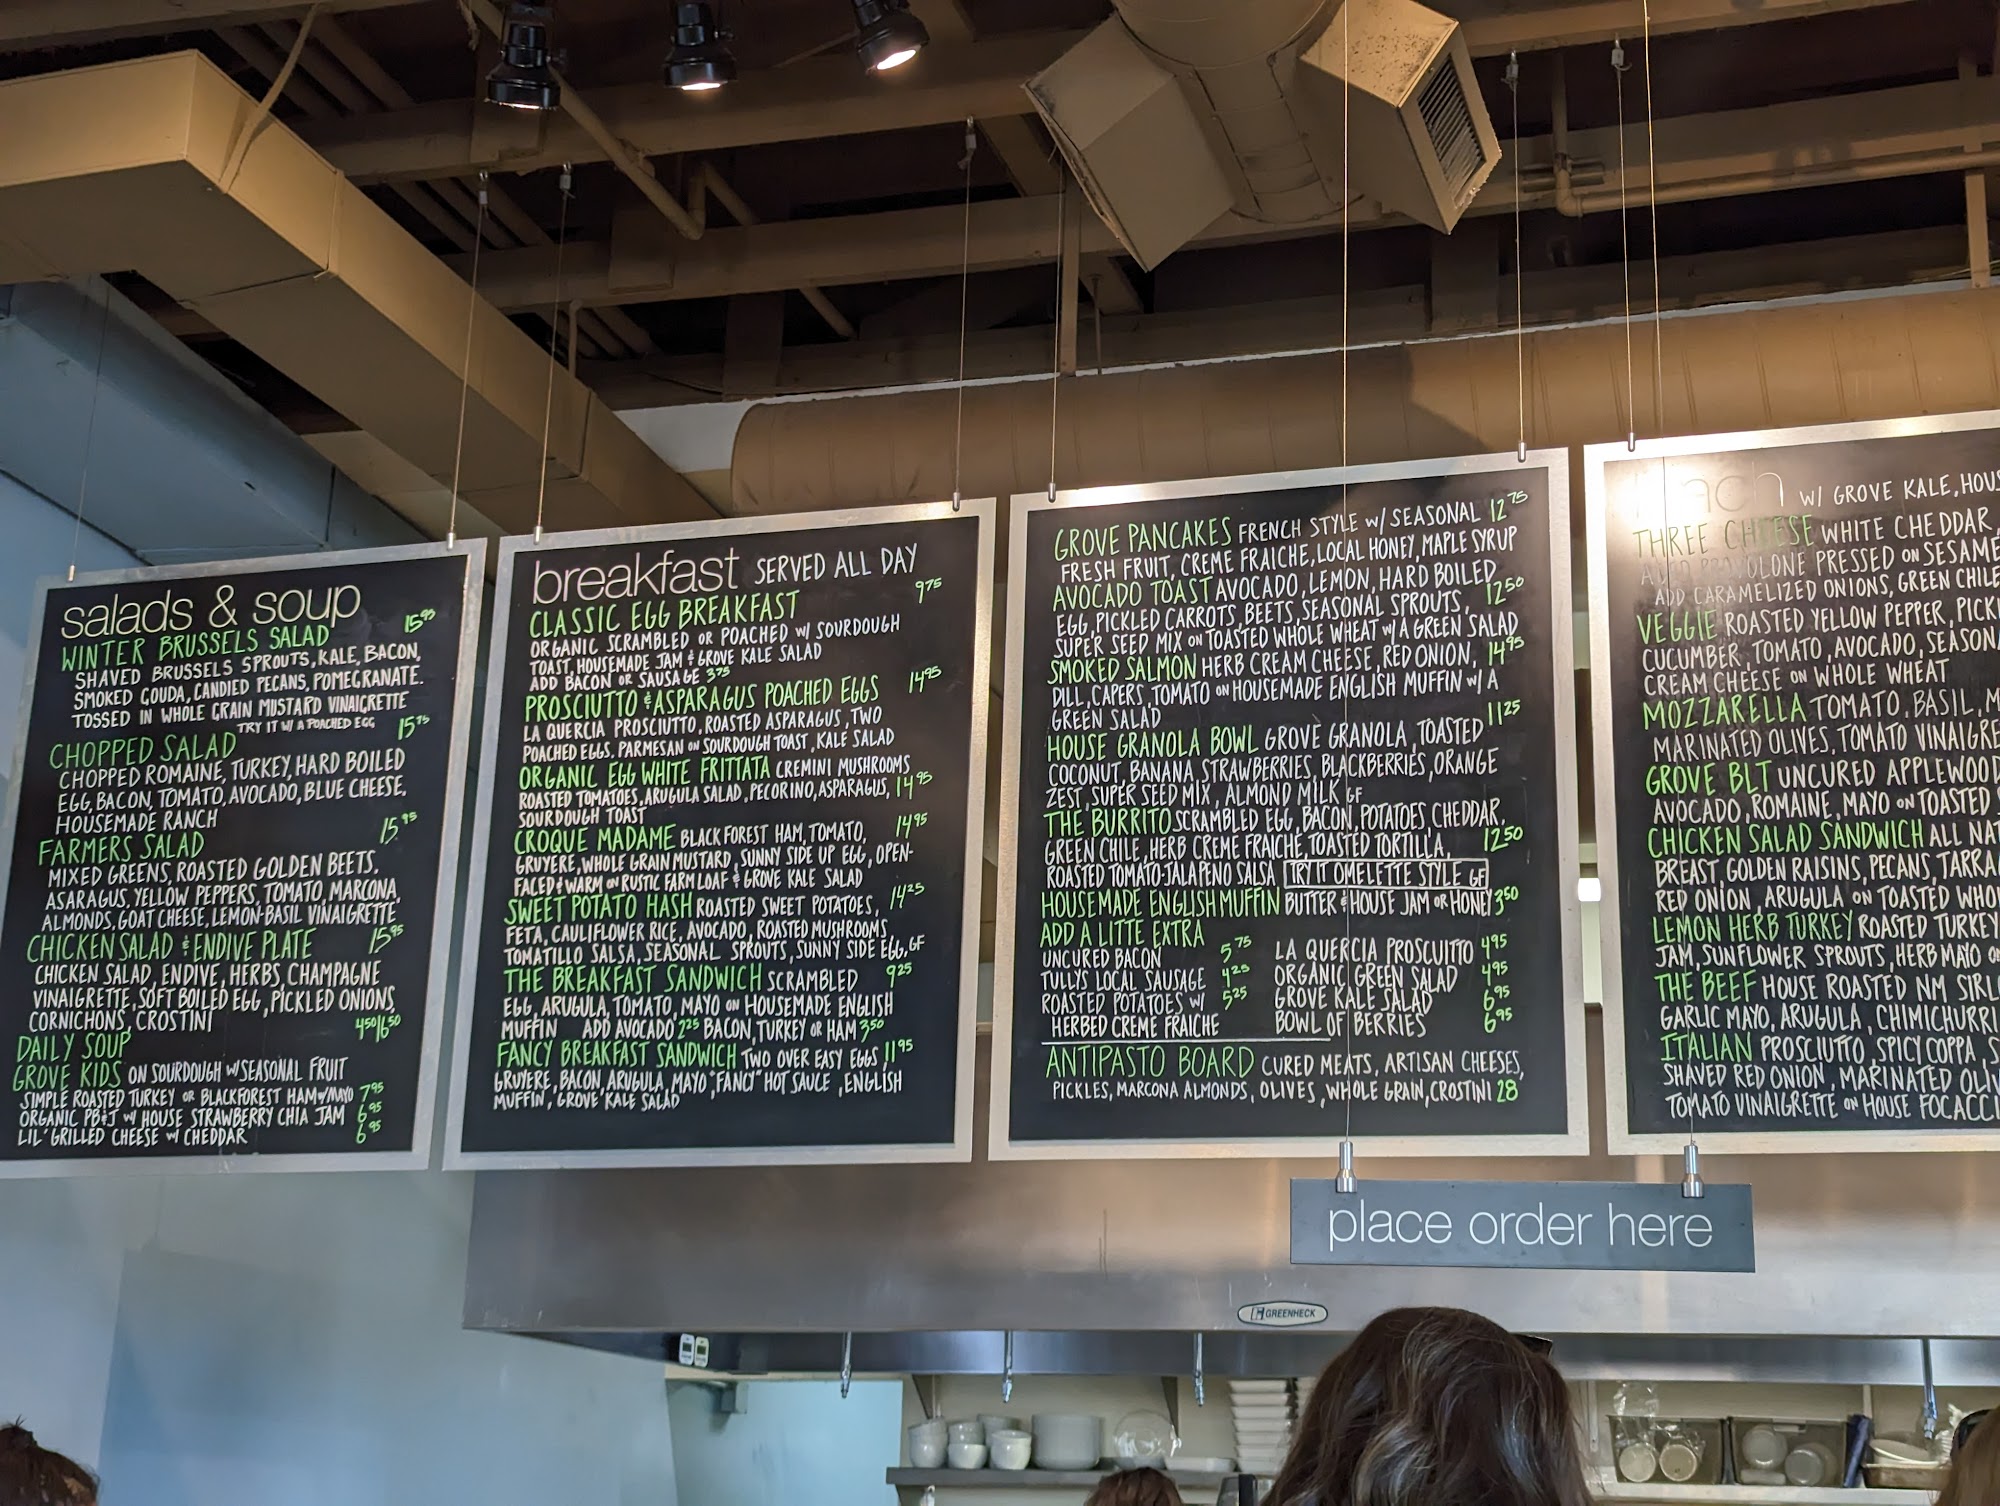 salads & soup
WINTER BRUSSELS SALAD 15.95
SHAVED BRUSSELS SPROUTS, KALE, BACON,
SMOKED GOUDA, CANDIED PECANS, POMEGRANATE.
TOSSED IN WHOLE GRAIN MUSTARD VINAIGRETTE
TRY IT W/ A POACHED EGG
CHOPPED SALAD 15.75
CHOPPED ROMAINE, TURKEY, HARD BOILED
EGG, BACON, TOMATO, AVOCADO, BLUE CHEESE,
HOUSEMADE RANCH
FARMERS SALAD 15.95
MIXED GREENS, ROASTED GOLDEN BEETS.
ASARAGUS, YELLOW PEPPERS, TOMATO, MARCONA,
ALMONDS, GOAT CHEESE, LEMON-BASIL VINAIGRETTE
CHICKEN SALAD & ENDIVE PLATE 15.95
CHICKEN SALAD, ENDIVE, HERBS, CHAMPAGNE
VINAIGRETTE, SOFT BOILED EGG, PICKLED ONIONS
CORNICHONS, CROSTINI
DAILY SOUP 4.50/6.50
GROVE KIDS ON SOURDOUGH W/ SEASONAL FRUIT
SIMPLE ROASTED TURKEY OR BLACKFOREST HAM W/ MAYO 7.95
ORGANIC PB&J W/ HOUSE STRAWBERRY CHIA JAM 6.95
LIL' GRILLED CHEESE W/ CHEDDAR 6.95
breakfast SERVED ALL DAY
CLASSIC EGG BREAKFAST 9.75
ORGANIC SCRAMBLED OR POACHED W/ SOURDOUGH
TOAST, HOUSEMADE JAM & GROVE KALE SALAD
ADD BACON OR SAUSAGE 3.75
PROSCIUTTO & ASPARAGUS POACHED EGGS 14.95
LA QUERCIA PROSCIUTTO, ROASTED ASPARAGUS, TWO
POACHED EGGS. PARMESAN ON SOURDOUGH TOAST, KALE SALAD
ORGANIC EGG WHITE FRITTATA CREMINI MUSHROOMS
ROASTED TOMATOES, ARUGULA SALAD, PECORINO, ASPARAGUS, 14.95
SOURDOUGH TOAST
CROQUE MADAME BLACK FOREST HAM, TOMATO, 14.95
GRUYERE, WHOLE GRAIN MUSTARD, SUNNY SIDE UP EGG, OPEN-
FACED & WARM ON RUSTIC FARM LOAF & GROVE KALE SALAD
SWEET POTATO HASH ROASTED SWEET POTATOES, 14.25
FETA, CAULIFLOWER RICE, AVOCADO, ROASTED MUSHROOMS
TOMATILLO SALSA, SEASONAL SPROUTS, SUNNY SIDE EGG, GF
THE BREAKFAST SANDWICH SCRAMBLED 9.25
EGG, ARUGULA, TOMATO, MAYO ON HOUSEMADE ENGLISH
MUFFIN ADD AVOCADO 2.25 BACON, TURKEY OR HAM 3.50
FANCY BREAKFAST SANDWICH TWO OVER EASY EGGS, 11.95
GRUYERE, BACON, ARUGULA, MAYO "FANCY" HOT SAUCE, ENGLISH
MUFFIN, 'GROVE' KALE SALAD
GROVE PANCAKES FRENCH STYLE W/ SEASONAL 12.75
FRESH FRUIT, CREME FRAICHE, LOCAL HONEY, MAPLE SYRUP
AVOCADO TOAST AVOCADO, LEMON, HARD BOILED 12.50
EGG, PICKLED CARROTS, BEETS, SEASONAL SPROUTS,
SUPER SEED MIX ON TOASTED WHOLE WHEAT W/ A GREEN SALAD
SMOKED SALMON HERB CREAM CHEESE, RED ONION, 14.95
DILL, CAPERS, TOMATO ON HOUSEMADE ENGLISH MUFFIN W/ A
GREEN SALAD
HOUSE GRANOLA BOWL GROVE GRANOLA, TOASTED 11.25
COCONUT, BANANA, STRAWBERRIES, BLACKBERRIES, ORANGE
ZEST, SUPER SEED MIX, ALMOND MILK GF
THE BURRITO SCRAMBLED EGG, BACON, POTATOES, CHEDDAR,
GREEN CHILE, HERB CREME FRAICHE, TOASTED TORTILLA, 12.50
ROASTED TOMATO-JALAPENO SALSA TRY IT OMELETTE STYLE GF
HOUSEMADE ENGLISH MUFFIN BUTTER & HOUSE JAM OR HONEY 3.50
ADD A LITTE EXTRA
UNCURED BACON 5.75
TULLYS LOCAL SAUSAGE 4.25
ROASTED POTATOES W/ 5.25
HERBED CREME FRAICHE
LA QUERCIA PROSCUITTO 4.95
ORGANIC GREEN SALAD 4.95
GROVE KALE SALAD 6.95
BOWL OF BERRIES 6.95
ANTIPASTO BOARD CURED MEATS, ARTISAN CHEESES,
PICKLES, MARCONA ALMONDS, OLIVES, WHOLE GRAIN, CROSTINI 28
W/ GROVE KALE, HOUS
THREE CHEESE WHITE CHEDDAR,
PROVOLONE PRESSED ON SESAME
ADD CARAMELIZED ONIONS, GREEN CHILE
VEGGIE ROASTED YELLOW PEPPER, PICK
CUCUMBER, TOMATO, AVOCADO, SEASON
CREAM CHEESE ON WHOLE WHEAT
MOZZARELLA TOMATO, BASIL, M
MARINATED OLIVES, TOMATO VINAIGRE
GROVE BLT UNCURED APPLEWOOD
AVOCADO, ROMAINE, MAYO ON TOASTED S
CHICKEN SALAD SANDWICH ALL NAT
BREAST, GOLDEN RAISINS, PECANS, TARRA
RED ONION, ARUGULA ON TOASTED WHO
LEMON HERB TURKEY ROASTED TURKEY
JAM, SUNFLOWER SPROUTS, HERB MAYO O
THE BEEF HOUSE ROASTED NM SIRL
GARLIC MAYO, ARUGULA, CHIMICHURRI
ITALIAN PROSCIUTTO, SPICY COPPA, S
SHAVED RED ONION, MARINATED OLIV
TOMATO VINAIGRETTE ON HOUSE FOCACCI
place order here
GREENHECK